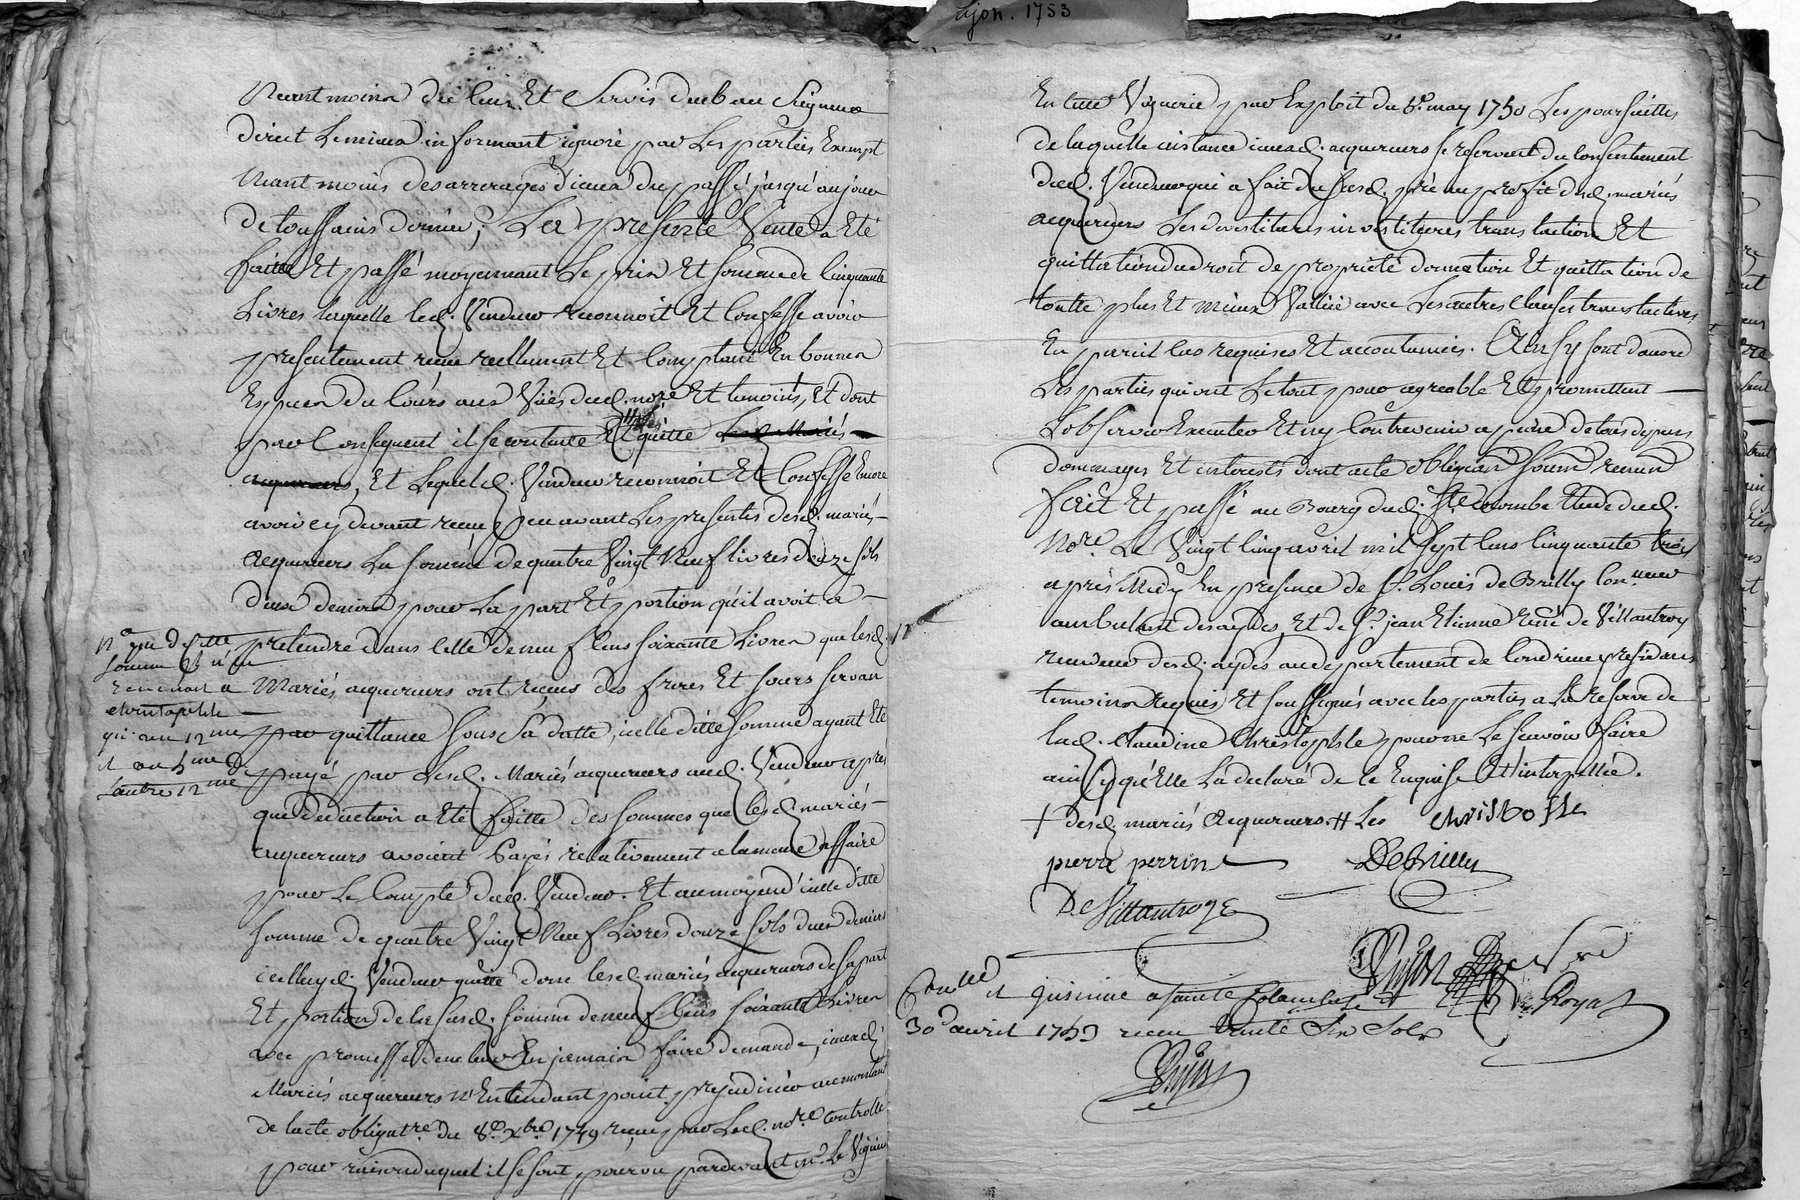 Lyon. 1753
Neant moins du lens Et Servis dueb au Seigneur
direct Le mieux informant ignoré par Les parties Exempt
Neant moins des arrerages d'iceux du passé jusqu'au jour
de toussains dernier; La presente Vente a Eté
faitte Et passé moyennant Le prix Et somme de Cinquante
Livres laquelle led. Vendeur reconnoit Et Confesse avoir
presentement reçue reellement Et Comptant En bonnes
Especes du Cours aux Vües dud. nore Et temoins, Et dont
par Consequent il se contante Et quitte Lesd. Mariés
acquereurs, Et Lequel d. Vendeur reconnoit Et Confesse Encore
avoir cy devant reçue Peu avant Les presentes desd. mariés
acquereurs La somme de quatre Vingt Neuf livres douze sols
deux deniers pour La part Et portion qu'il avoit a
pretendre dans Celle de neuf Cens soixante Livres que lesd.
Mariés acquereurs ont reçues des freres Et sours servan
par quittance sous Sa datte, icelle ditte somme ayant Eté
payé par Lesd. Mariés acquereurs aud. Vendeur apres
que deduction a Eté faitte des sommes que lesd. mariés
acquereurs avoient Payés relativement a la meme affaire
pour Le Compte dud. Vendeur. Et au moyen d'icelle ditte
somme de quatre Vingt Neuf Livres douze sols deux deniers
icelluy d. Vendeur quitte donc lesd. mariés acquereurs de sa part
Et portion de la susd. somme de neuf Cens soixante Livres
avec promesse de ne leur En jamais faire demande, iceux d.
Mariés acquereurs N'Entendant point prejudicier au montant
de l'acte obligatre. du 8e. Xbre 1749 reçu par Led. nore controllé
pour raison duquel il se sont pourvu pardevant Mr. Le Viguier
somme
revenant a
christophle
qui a un 12me
et au
l'autre 12me
12e
En cette Viguerie par Exploit du 6e. may 1750 Les poursuittes
de laquelle instance iceux d. acquereurs se reservent du Consentement
dud. Vendeur qui a fait du susd. pré au profit desd. mariés
acquereurs Les devestitures investitures translation Et
quittation du droit de proprieté donnation Et quittation de
toutte plus Et mieux Vallüe avec Les autres Clauses translatives
En pareil Cas requises Et accoutumées. Ainsy sont d'accord
Les parties qui ont Le tout pour agreable Et promettent
L'observer Executer Et ny Contrevenir a peine de tous depens
dommages Et interests dont acte obligean soumn renonn
fait Et passé au Bourg dud. Ste Colombe Etude dud.
Nore. Le Vingt Cinq avril mil sept Cens Cinquante trois
apres Midy En presence de Sr. Louis de Brilly Con.
ambulant des aydes, Et de Sr. jean Etienne René de Villantroy
receveur desd. aydes au departement de Condrieu presidans
temoins requis Et soussignés avec les parties a La reserve de
lad. Claudine Christophle pour ne Le sçavoir faire
ainsy qu'Elle L'a declaré de ce Enquise Et interpellée.
+ desd. mariés acquereurs. # Les christofle
pierre perrin DeBrilly
De Villantroys
Royal
Conllé
et insinüé a sainte Colombe Le
30e avril 1753 reçu trente Six Sols